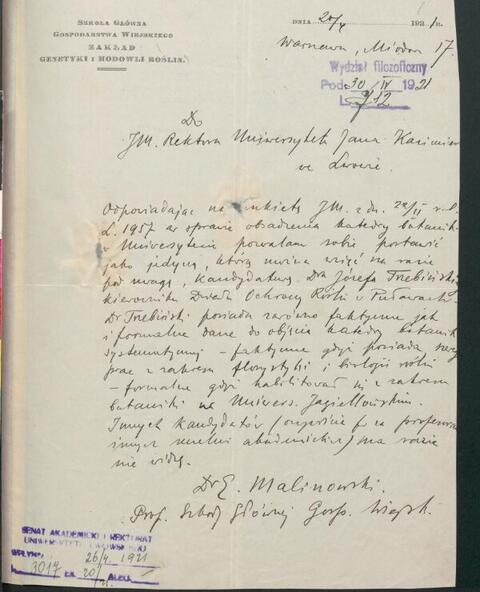 SZKOŁA GŁÓWNA
GOSPODARSTWA WIEJSKIEGO
ZAKŁAD
GENETYKI I HODOWLI ROŚLIN.
DNIA 20/4 1921 R.
Warszawa, Miodowa 17.
Wydział filozoficzny
Pod. 30/IV 1921
L. 912
Do
JM. Rektora Uniwersytetu Jana Kazimierza
we Lwowie.
Odpowiadając na ankietę JM. z dn. 22/II r. b.
L. 1957 w sprawie obsadzenia katedry botaniki
w Uniwersytecie pozwalam sobie postawić
jako jedyną, którą można wziąć na razie
pod uwagę, kandydaturę Dra Józefa Trzebińskiego
kierownika Działu Ochrony Roślin w Puławach.
Dr Trzebiński posiada zarówno faktyczne jak
i formalne dane do objęcia katedry botaniki
systematycznej – faktyczne gdyż posiada szereg
prac z zakresu florystyki i biologii roślin
– formalne gdyż habilitował się z zakresu
botaniki na Univers. Jagiellońskim.
Innych kandydatów ( za profesorami
innych uczelni akademickich) na razie
nie widzę.
Dr E. Malinowski.
Prof. Szkoły Głównej Gosp. Wiejsk.
SENAT AKADEMICKI I REKTORAT
UNIWERSYTETU LWOWSKIEGO
WPŁYNĘŁO 26/4 1921
L. 3017 20/